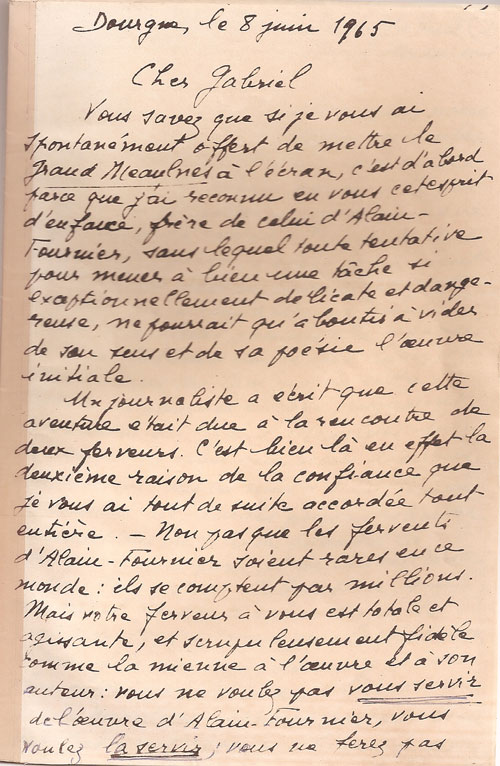 Dourgne, le 8 juin 1965
Cher Gabriel
Vous savez que si je vous ai
spontanément offert de mettre le
Grand Meaulnes à l'écran, c'est d'abord
parce que j'ai reconnu en vous cet esprit
d'enfance, frère de celui d'Alain-
Fournier, sans lequel toute tentative
pour mener à bien une tâche si
exceptionnellement délicate et dange-
reuse, ne pourrait qu'aboutir à vider
de son sens et de sa poésie l'œuvre
initiale.
Un journaliste a écrit que cette
aventure était due à la rencontre de
deux ferveurs. C'est bien là en effet la
deuxième raison de la confiance que
je vous ai tout de suite accordée tout
entière. – Non pas que les fervents
d'Alain-Fournier soient rares en ce
monde : ils se comptent par millions.
Mais votre ferveur à vous est totale et
agissante, et scrupuleusement fidèle
comme la mienne à l'œuvre et à son
auteur : vous ne voulez pas vous servir
de l'œuvre d'Alain-Fournier, vous
voulez la servir ; vous ne serez pas